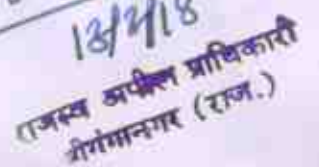 13/4/18
राजस्व अपील प्राधिकारी
श्रीगंगानगर (राज.)